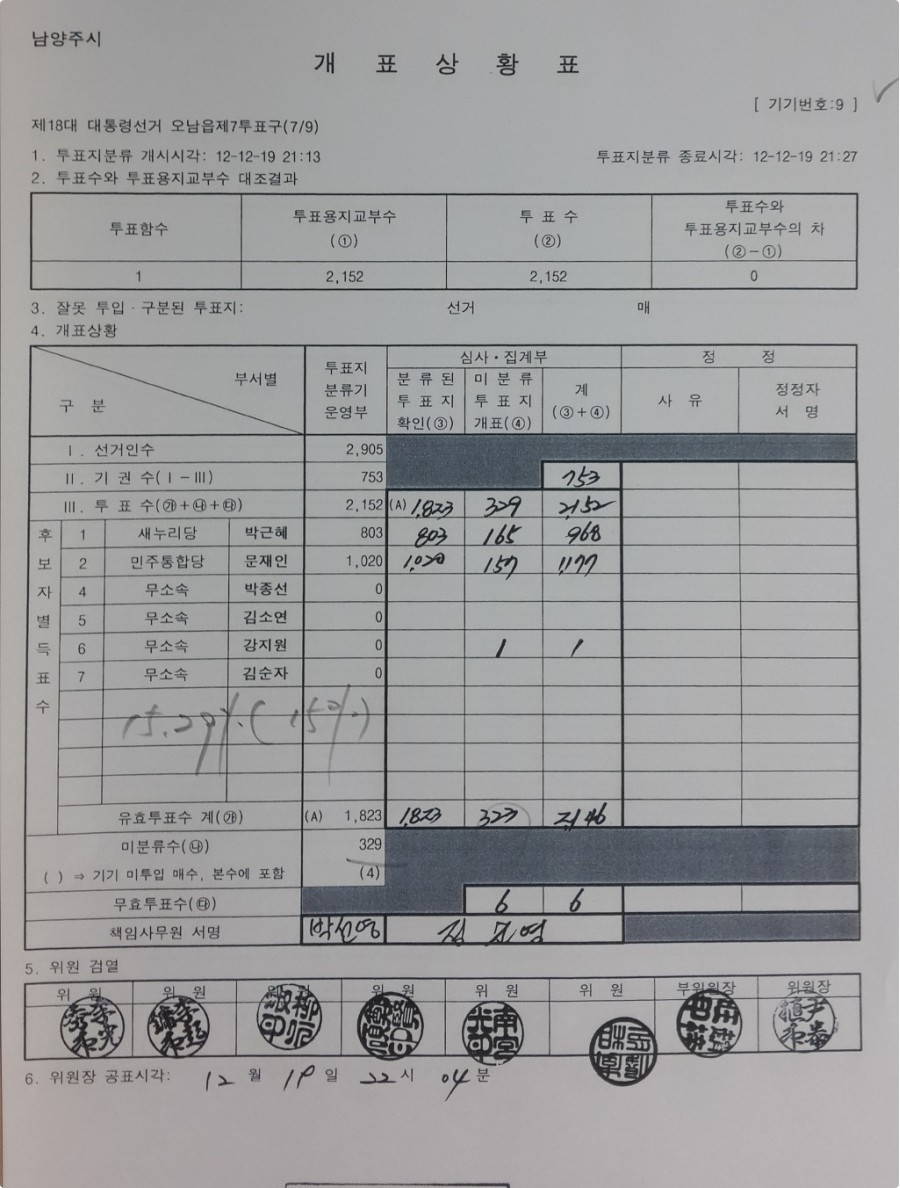 남양주시
개 표 상 황 표
[ 기기번호:9 ]
제18대 대통령선거 오남읍제7투표구(7/9)
1. 투표지분류 개시시각: 12-12-19 21:13 투표지분류 종료시각: 12-12-19 21:27
2. 투표수와 투표용지교부수 대조결과
투표함수 투표용지교부수 (①) 투 표 수 (②) 투표수와 투표용지교부수의 차 (②-①)
1 2,152 2,152 0
3. 잘못 투입·구분된 투표지: 선거 매
4. 개표상황
구 분 부서별 투표지 분류기 운영부 심사·집계부 정 정
분 류 된 투 표 지 확인(③) 미 분 류 투 표 지 개표(④) 계 (③+④) 사 유 정정자 서 명
Ⅰ. 선거인수 2,905
Ⅱ. 기 권 수(Ⅰ-Ⅲ) 753 753
Ⅲ. 투 표 수(㉮+㉯+㉰) 2,152 (A) 1,823 329 2,152
후보자별득표수
1 새누리당 박근혜 803 803 165 968
2 민주통합당 문재인 1,020 1,020 157 1,177
4 무소속 박종선 0
5 무소속 김소연 0
6 무소속 강지원 0 1 1
7 무소속 김순자 0
15.29%(15%)
유효투표수 계(㉮) (A) 1,823 1,823 323 2,146
미분류수(㉯) 329
( ) ⇒ 기기 미투입 매수, 본수에 포함 (4)
무효투표수(㉰) 6 6
책임사무원 서명 박선영
5. 위원 검열
위 원 위 원 위 원 위 원 위 원 위 원 부위원장 위원장
6. 위원장 공표시각: 12 월 19 일 22 시 04 분